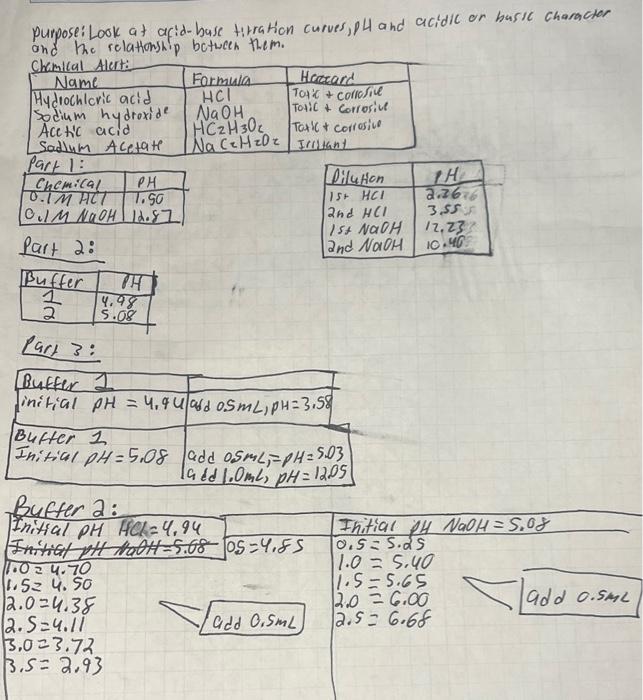 purpose: Look at acid-base titration curves, pH and acidic or basic character
and the relationship between them.
Chemical Alert:
Name Formula Hazzard
Hydrochloric acid HCl Toxic + corrosive
Sodium hydroxide NaOH Toxic + Corrosive
Acetic acid HC2H3O2 Toxic + corrosive
Sodium Acetate NaC2H2O2 Irritant
Part 1:
Chemical PH
0.1M HCl 1.50
0.1M NaOH 12.87
Dilution PH
1st HCl 2.26
2nd HCl 3.55
1st NaOH 12.23
2nd NaOH 10.40
Part 2:
Buffer PH
1 4.98
2 5.08
Part 3:
Buffer 1
initial pH = 4.94 add 0.5mL, pH = 3.58
Buffer 1
Initial pH = 5.08 add 0.5mL, = pH = 5.03
add 1.0mL, pH = 12.05
Buffer 2:
Initial pH HCl = 4.94
Initial pH NaOH = 5.08 05 = 4.85
1.0 = 4.70
1.5 = 4.50
2.0 = 4.38
2.5 = 4.11
3.0 = 3.72
3.5 = 2.93
add 0.5mL
Initial pH NaOH = 5.08
0.5 = 5.25
1.0 = 5.40
1.5 = 5.65
2.0 = 6.00
2.5 = 6.68
add 0.5mL